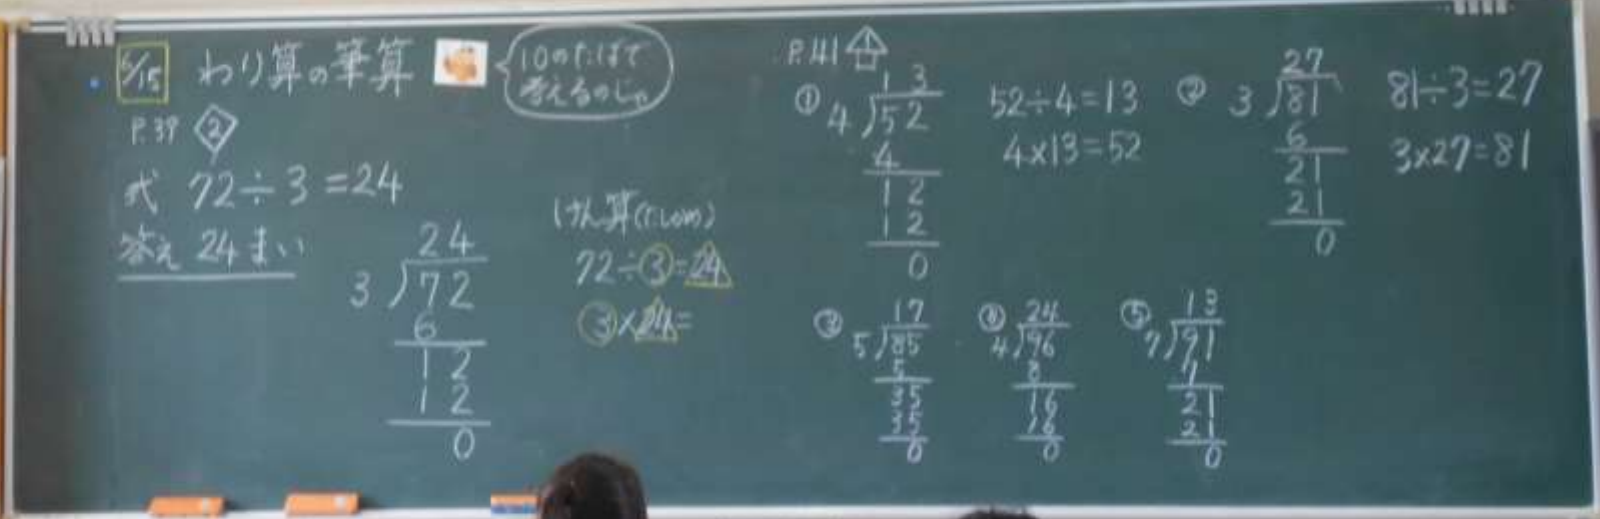 6/15 わり算の筆算
10のたばで
考えるのじゃ
P.39 ②
式 72÷3=24
答え 24まい
24
3)72
6
12
12
0
けん算(たしかめ)
72÷3=24
3×24=
P.41 1
① 13
4)52
4
12
12
0
52÷4=13
4×13=52
② 27
3)81
6
21
21
0
81÷3=27
3×27=81
③ 17
5)85
5
35
35
0
④ 24
4)96
8
16
16
0
⑤ 13
7)91
7
21
21
0